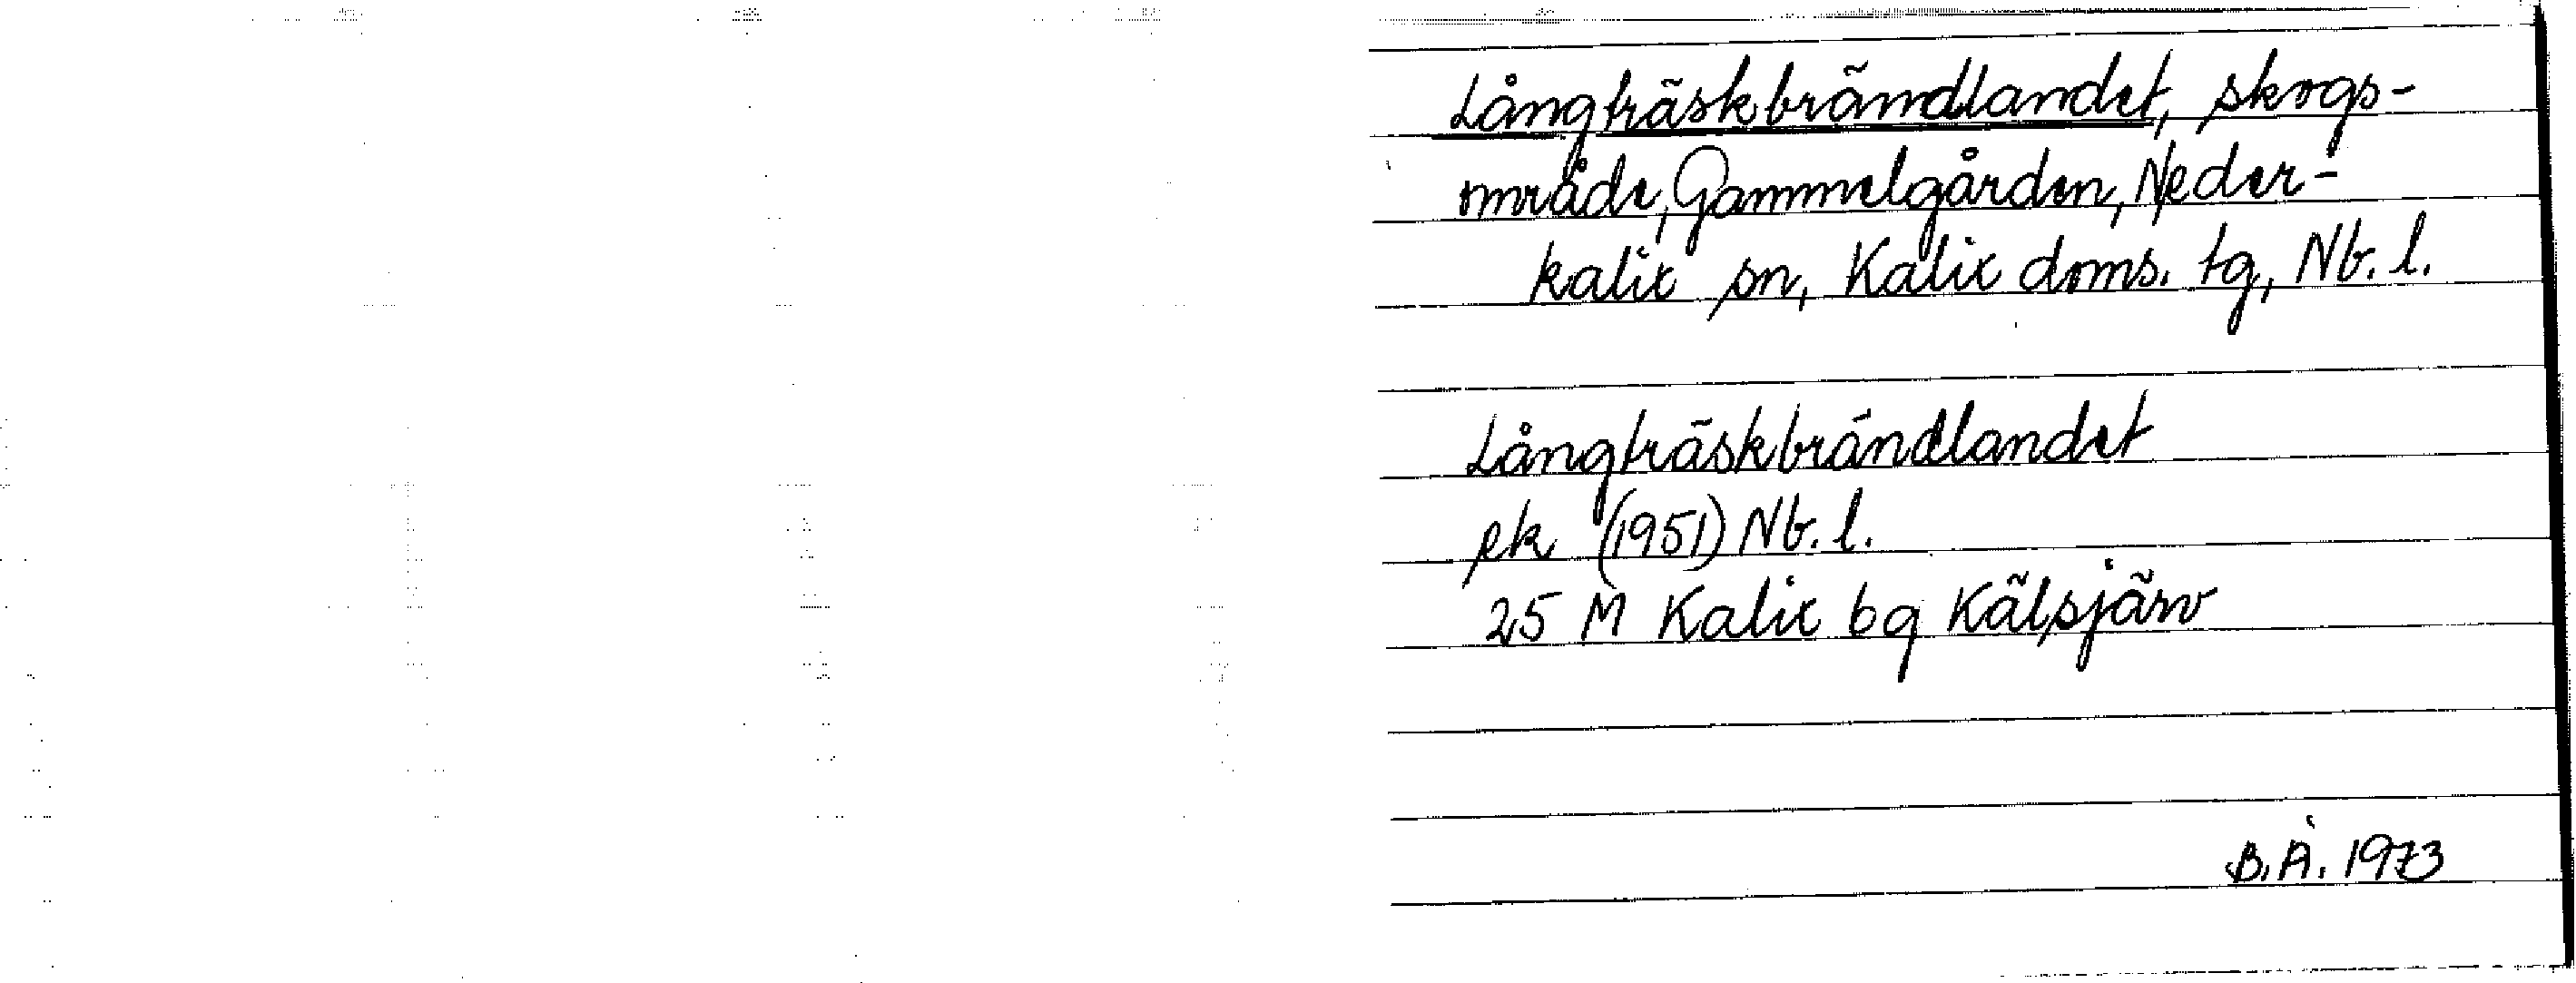 Långträskbrändlandet, skogs-
område, Gammelgården, Neder-
kalix sn, Kalix doms. tg, Nb. l.
Långträskbrändlandet
ek (1951) Nb. l.
25 M Kalix 6g Kälsjärv
B.Å. 1973